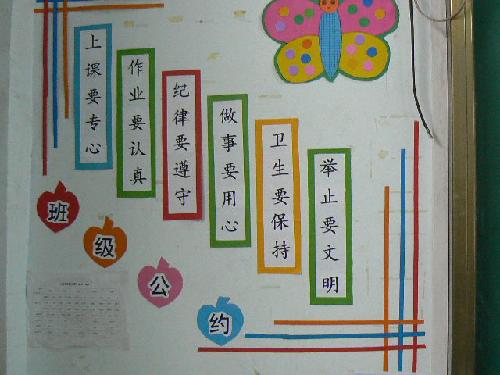 上课要专心
作业要认真
纪律要遵守
做事要用心
卫生要保持
举止要文明
班级公约